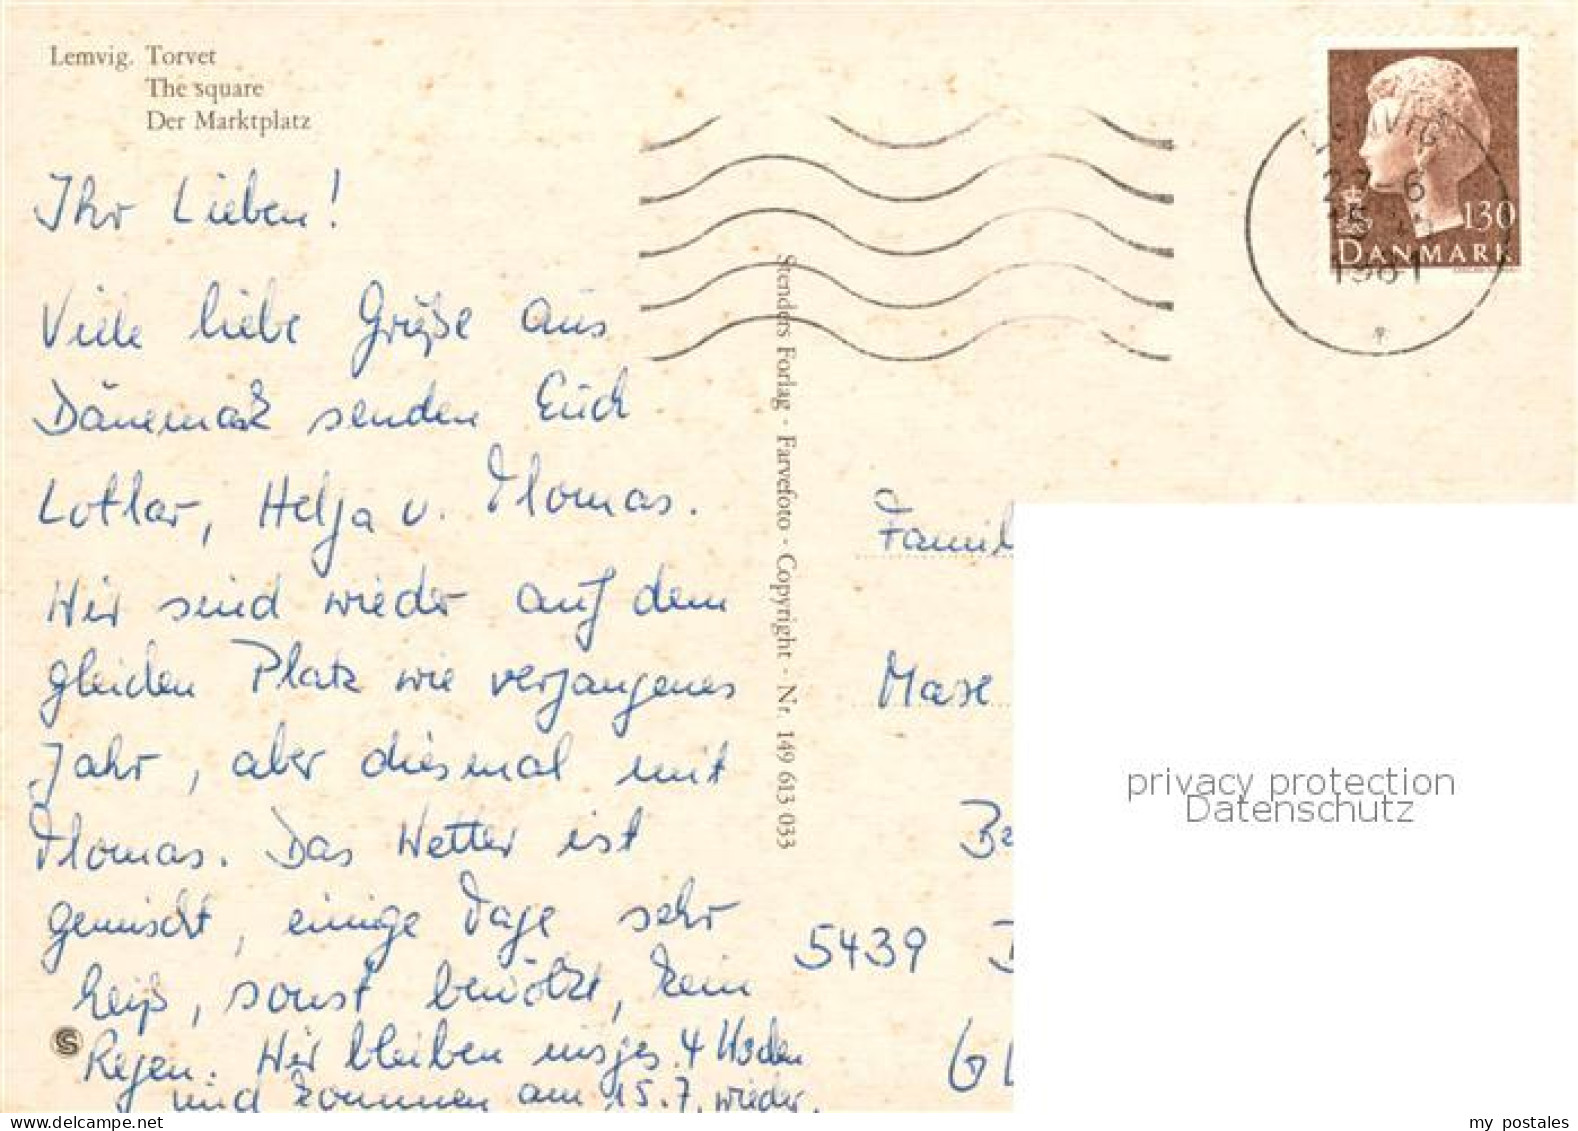 Lemvig. Torvet
The square
Der Marktplatz
Ihr Lieben!
Viele liebe Grüße aus
Dänemark senden Euch
Lothar, Helga u. Thomas.
Wir sind wieder auf dem
gleichen Platz wie vergangenes
Jahr, aber diesmal mit
Thomas. Das Wetter ist
gemischt, einige Tage sehr
heiß, sonst bewölkt, kein
Regen. Wir bleiben insges. 4 Wochen
und kommen am 15.7. wieder.
Stenders Forlag - Farvefoto - Copyright - Nr. 149 613 033
LEMVIG
27. 6
1981
130
DANMARK
Famil
5439
privacy protection
Datenschutz
my postales